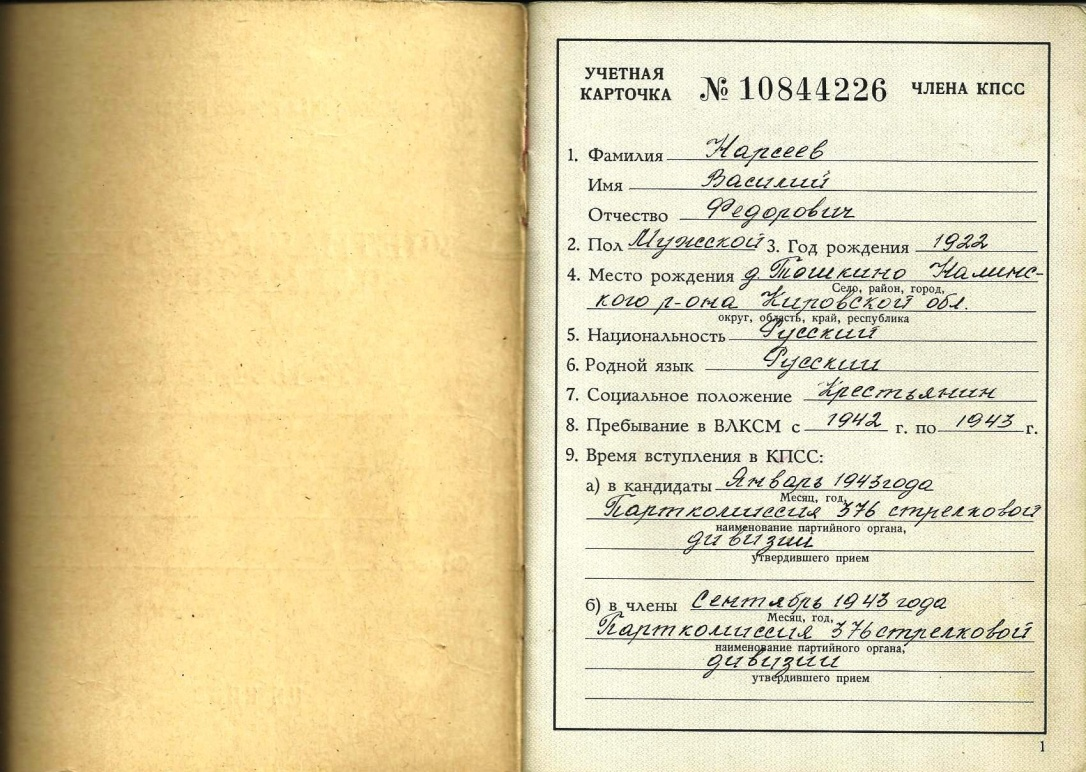 УЧЕТНАЯ КАРТОЧКА № 10844226 ЧЛЕНА КПСС
1. Фамилия Карсеев
Имя Василий
Отчество Федорович
2. Пол Мужской 3. Год рождения 1922
4. Место рождения д. Тошкино Калинс-
Село, район, город,
кого р-она Кировской обл.
округ, область, край, республика
5. Национальность Русский
6. Родной язык Русский
7. Социальное положение Крестьянин
8. Пребывание в ВЛКСМ с 1942 г. по 1943 г.
9. Время вступления в КПСС:
а) в кандидаты Январь 1943 года
Месяц, год,
Парткомиссия 376 стрелковой
наименование партийного органа,
дивизии
утвердившего прием
б) в члены Сентябрь 1943 года
Месяц, год,
Парткомиссия 376 стрелковой
наименование партийного органа,
дивизии
утвердившего прием
1